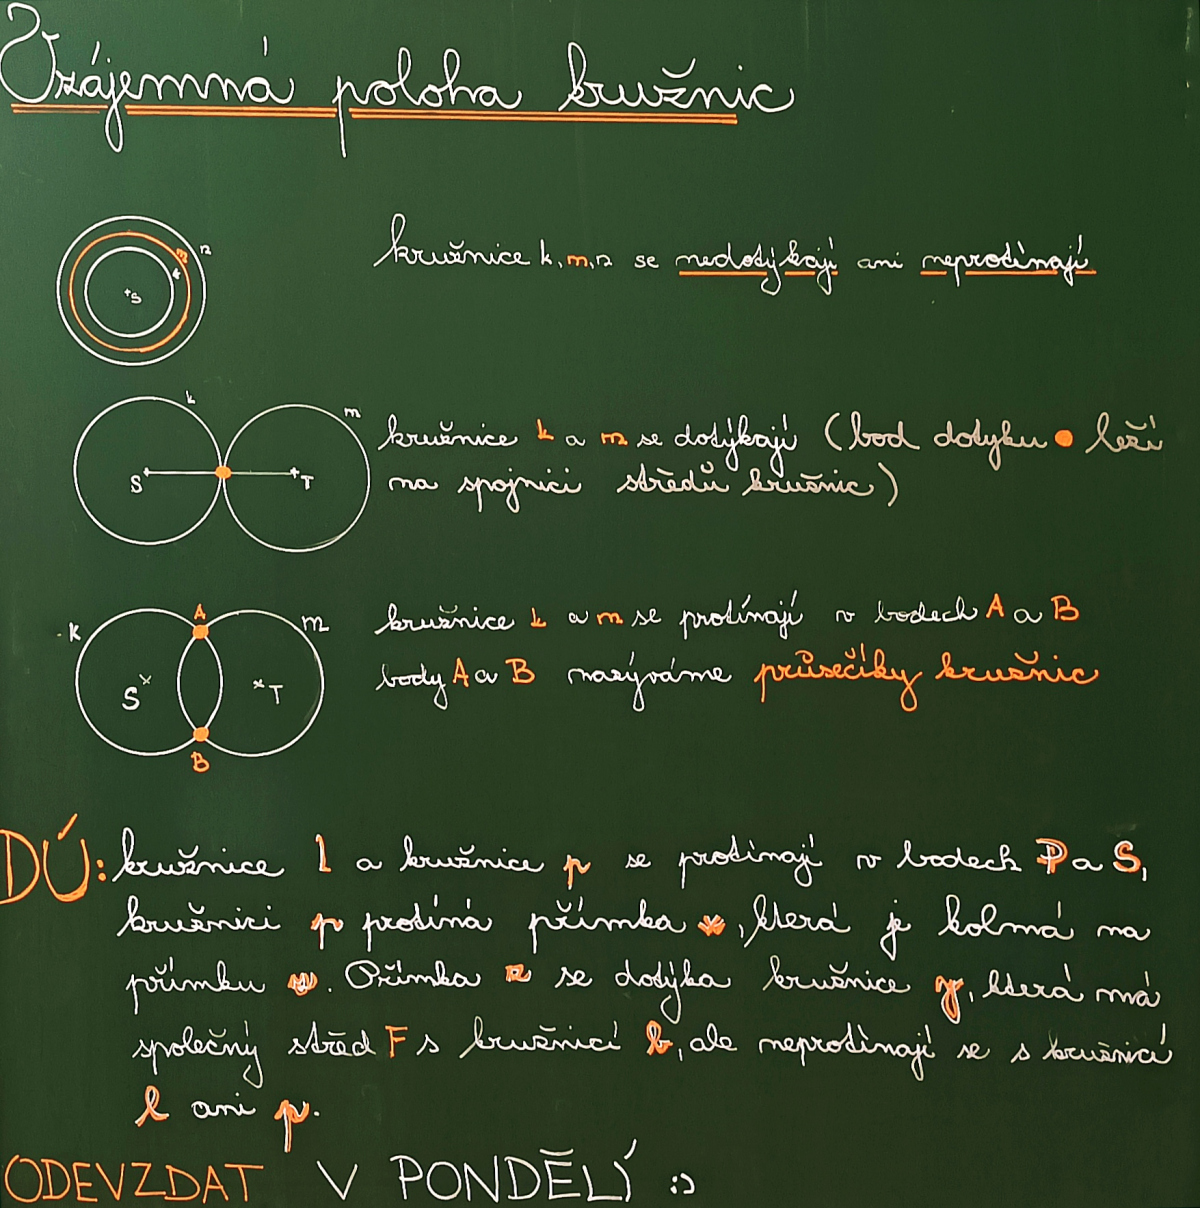 Vzájemná poloha kružnic
n
m
k
S
kružnice k, m, n se nedotýkají ani neprotínají
k
m
S
T
kružnice k a m se dotýkají (bod dotyku leží
na spojnici středů kružnic)
k
A
m
S
T
B
kružnice k a m se protínají v bodech A a B
body A a B nazýváme průsečíky kružnic
DÚ: kružnice l a kružnice p se protínají v bodech P a S,
kružnici p protíná přímka, která je kolmá na
přímku. Přímka se dotýka kružnice y, která má
společný střed F s kružnicí b, ale neprotínají se s kružnicí
l ani p.
ODEVZDAT V PONDĚLÍ :)